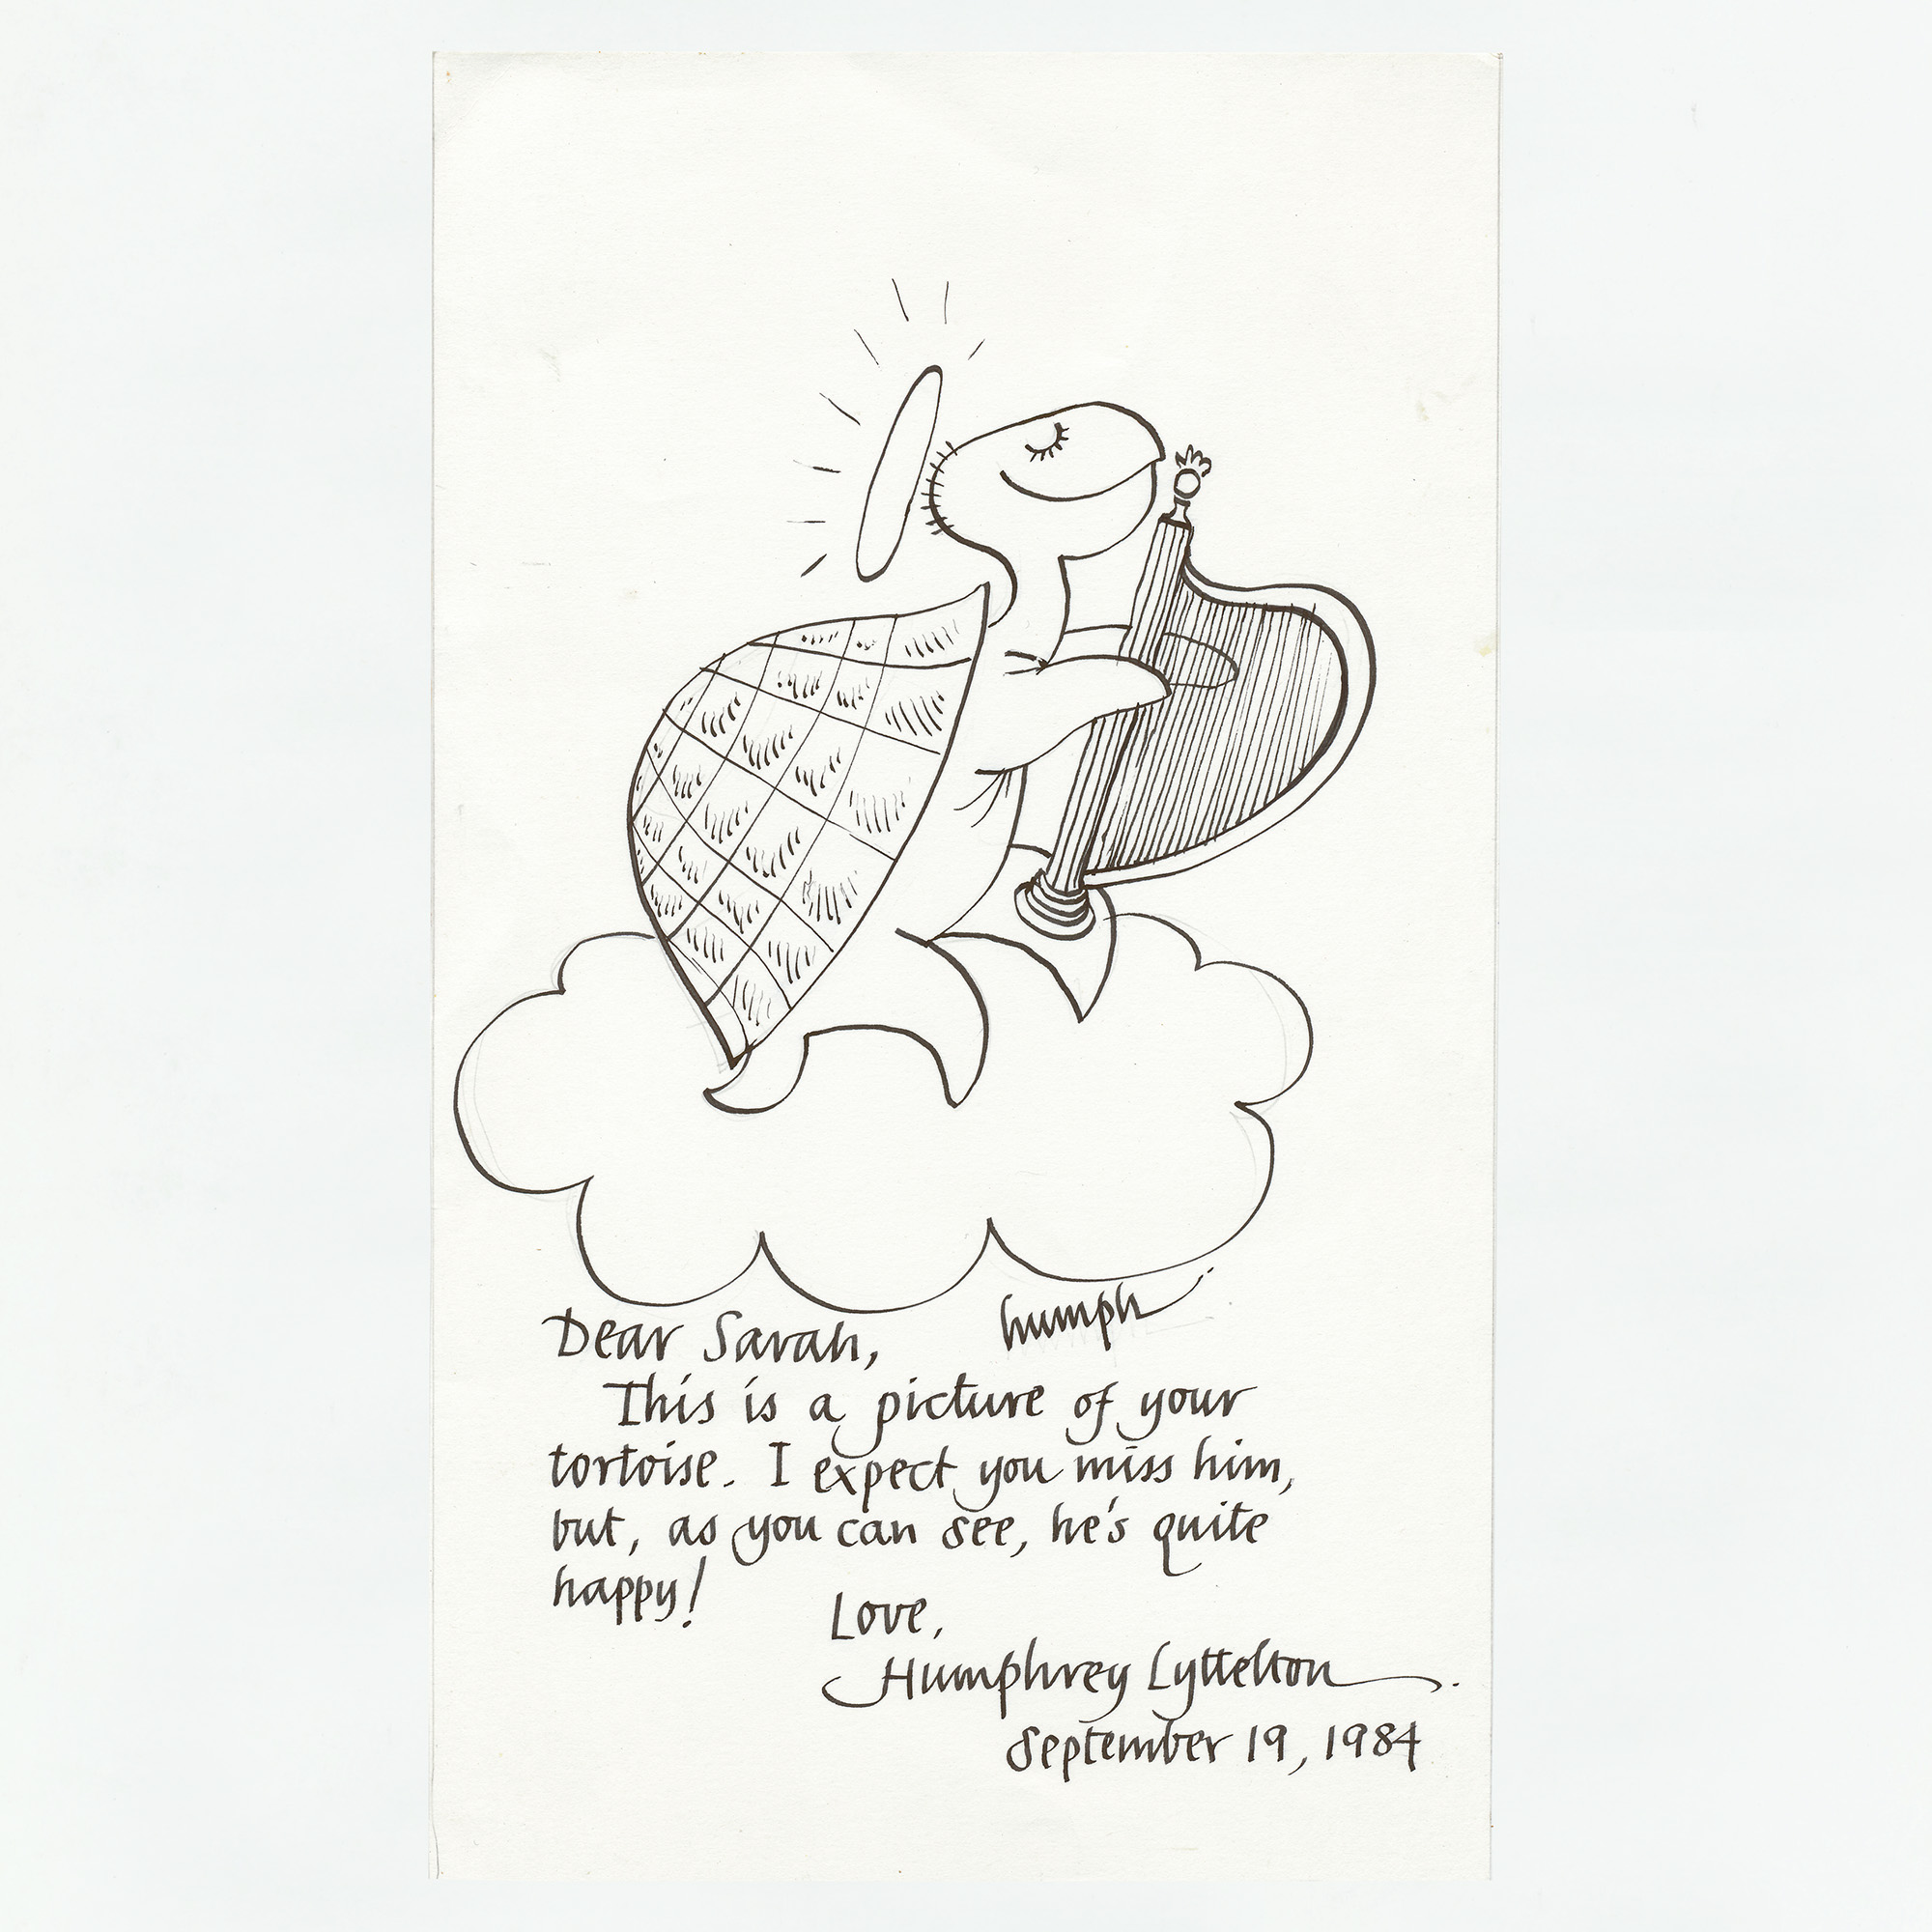 humph
Dear Sarah,
This is a picture of your
tortoise. I expect you miss him,
but, as you can see, he's quite
happy!
Love,
Humphrey Lyttelton.
September 19, 1984